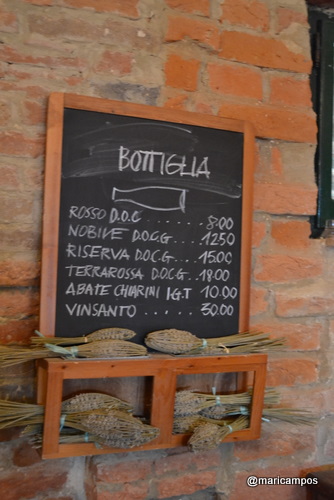 BOTTIGLIA
ROSSO D.O.C. ...... 8.00
NOBILE D.O.C.G. ... 12.50
RISERVA D.O.C.G. ... 15.00
TERRAROSSA D.O.C.G. .. 18.00
ABATE CHIARINI I.G.T 10.00
VINSANTO ...... 30.00
@maricampos